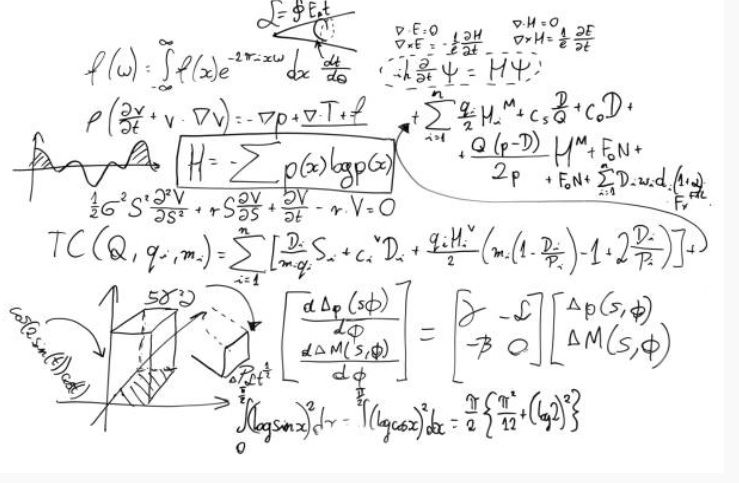 ℒ = ∮ E₁t
∇·E=0 ∇·H=0
∇×E = -1/c ∂H/∂t ∇×H = 1/c ∂E/∂t
f(ω) = ∫_{-∞}^{∞} f(x)e^{-2πixω} dx dt/dθ
iħ ∂/∂t Ψ = HΨ
ρ(∂v/∂t + v · ∇v) = -∇p + ∇·T + f
+ Σ_{i=1}^{n} q_i/2 H_i^M + c_s D/Q + c_0 D +
H = -Σ p(x) log p(x)
+ Q(p-D)/2p H^M + F_0N +
+ F_0N + Σ_{i=1}^{n} D_i w_i d_i (1+α)
½σ²S² ∂²V/∂S² + rS ∂V/∂S + ∂V/∂t - r·V = 0
TC(Q, q_i, m_i) = Σ_{i=1}^{n} [D_i/(m_i q_i) S_i + c_i^v D_i + q_i H_i^v/2 (m_i(1 - D_i/P_i) - 1 + 2 D_i/P_i)] +
[dΔp(sϕ)/dϕ dΔM(s,ϕ)/dϕ] = [-β 0] [Δp(s,ϕ) ΔM(s,ϕ)]
∫_0^{π/2} (log sin x)² dx = ∫^{π/2} (log cos x)² dx = π/2 {π²/12 + (log 2)²}